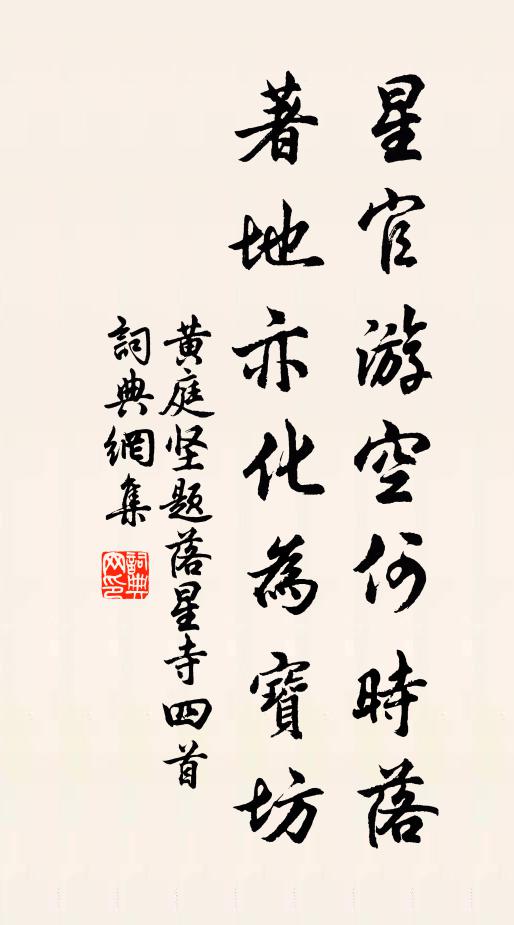 星官游空何時落
著地亦化為寶坊
黄庭坚题落星寺四首
詞典網集
詞典网印